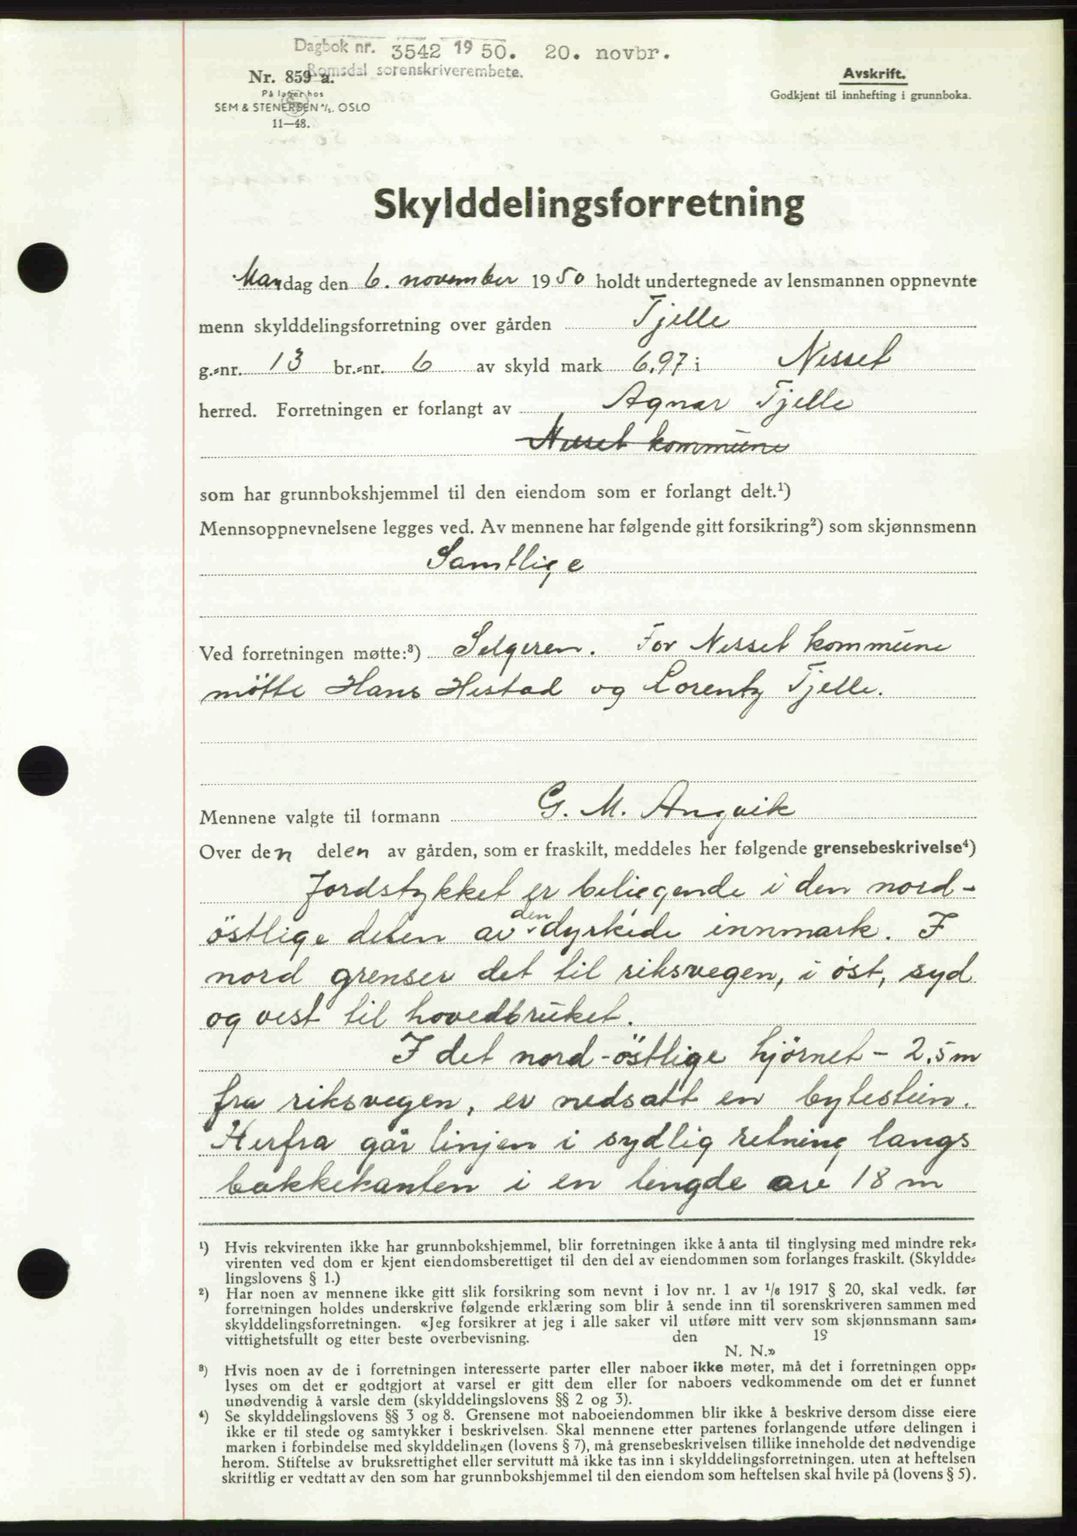 Dagbok nr. 3542 19 50. 20. novbr.
Romsdal sorenskriverembete.
Nr. 859 a.
På lager hos
SEM & STENERSEN A/S. OSLO
11—48.
Avskrift.
Godkjent til innhefting i grunnboka.
Skylddelingsforretning
Mandag den 6. november 1950 holdt undertegnede av lensmannen oppnevnte
menn skylddelingsforretning over gården Tjelle
g.-nr. 13 br.-nr. 6 av skyld mark 6,97 i Nesset
herred. Forretningen er forlangt av Agnar Tjelle
Nesset kommune
som har grunnbokshjemmel til den eiendom som er forlangt delt.¹)
Mennsoppnevnelsene legges ved. Av mennene har følgende gitt forsikring²) som skjønnsmenn
Samtlige
Ved forretningen møtte:³) Selgeren. For Nesset kommune
møtte Hans Hestad og Lorentz Tjelle.
Mennene valgte til formann G. M. Angvik
Over den delen av gården, som er fraskilt, meddeles her følgende grensebeskrivelse⁴)
Jordstykket er beliggende i den nord-
östlige delen av den dyrkede innmark. I
nord grenser det til riksvegen, i öst, syd
og vest til hovedbruket.
I det nord-östlige hjörnet - 2,5 m
fra riksvegen, er nedsatt en bytestein.
Herfra går linjen i sydlig retning langs
bakkekanten i en lengde av 18 m
¹) Hvis rekvirenten ikke har grunnbokshjemmel, blir forretningen ikke å anta til tinglysing med mindre rek-
virenten ved dom er kjent eiendomsberettiget til den del av eiendommen som forlanges fraskilt. (Skyldde-
lingslovens § 1.)
²) Har noen av mennene ikke gitt slik forsikring som nevnt i lov nr. 1 av 1/6 1917 § 20, skal vedk. før
forretningen holdes underskrive følgende erklæring som blir å sende inn til sorenskriveren sammen med
skylddelingsforretningen. «Jeg forsikrer at jeg i alle saker vil utføre mitt verv som skjønnsmann sam-
vittighetsfullt og etter beste overbevisning. den 19
N. N.»
³) Hvis noen av de i forretningen interesserte parter eller naboer ikke møter, må det i forretningen opp-
lyses om det er godtgjort at varsel er gitt dem eller for naboers vedkommende om det er funnet
unødvendig å varsle dem (skylddelingslovens §§ 2 og 3).
⁴) Se skylddelingslovens §§ 3 og 8. Grensene mot naboeiendommen blir ikke å beskrive dersom disse eiere
ikke er til stede og samtykker i beskrivelsen. Skal mennene etter partenes forlangende utføre delingen i
marken i forbindelse med skylddelingen (lovens § 7), må grensebeskrivelsen tillike inneholde det nødvendige
herom. Stiftelse av bruksrettighet eller servitutt må ikke tas inn i skylddelingsforretningen, uten at heftelsen
skriftlig er vedtatt av den som har grunnbokshjemmel til den eiendom som heftelsen skal hvile på (lovens § 5).